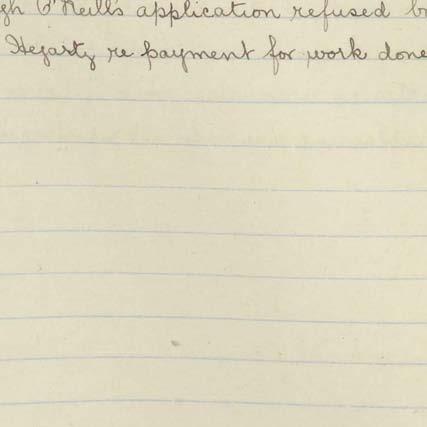 gh O'Neill's application refused b
Hegarty re payment for work done